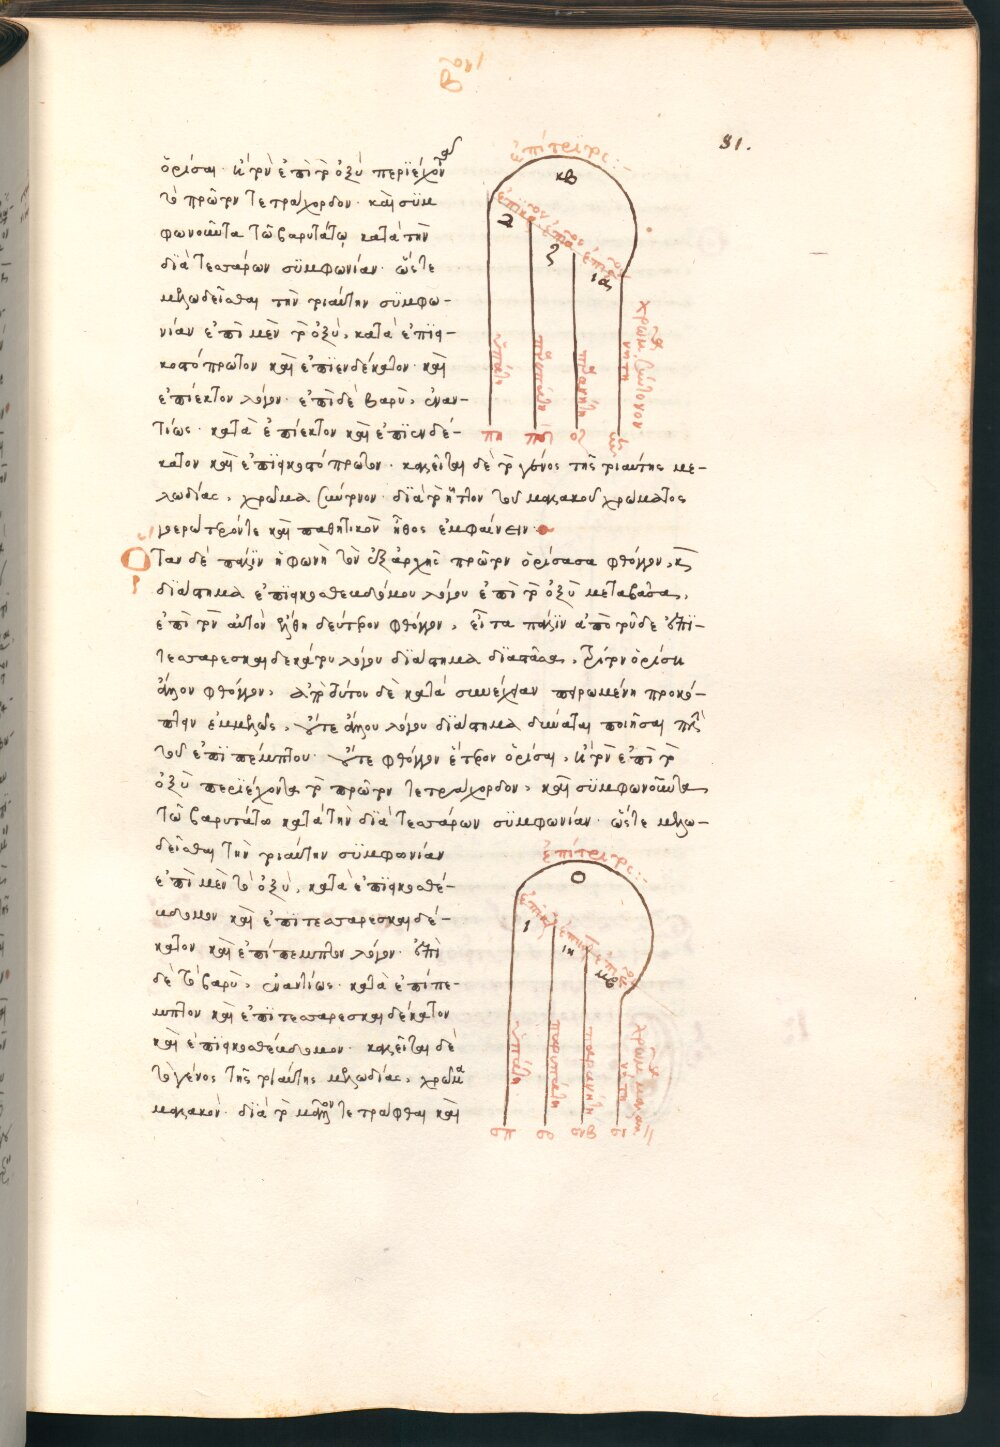 81.
ὁρίσαι· καὶ τὸν ἐπὶ τὸ ὀξὺ περιέχοντα
τὸ πρῶτον τετράχορδον· καὶ συμ
φωνοῦντα τῶ βαρυτάτω κατὰ τὴν
διὰ τεσσάρων συμφωνίαν· ὥστε
μελωδεῖσθαι τὴν τοιαύτην συμφω-
νίαν ἐπὶ μὲν τὸ ὀξὺ, κατὰ ἐπιει-
κοστόπρωτον καὶ ἐπιενδέκατον· καὶ
ἐπίεκτον λόγον· ἐπὶ δὲ βαρὺ, ἐναν-
τίως· κατὰ ἐπίεκτον καὶ ἐπιενδέ-
κατον καὶ ἐπιεικοστόπρωτον· καλεῖται δὲ τὸ γένος τῆς τοιαύτης με-
λωδίας, χρῶμα σύντονον· διὰ τὸ ἧττον τοῦ μαλακοῦ χρώματος
γοερώτερόν τε καὶ παθητικὸν ἦθος ἐμφαίνειν
Ὅταν δὲ πάλιν ἡ φωνὴ τὸν ἐξ ἀρχῆς πρῶτον ὁρίσασα φθόγγον,
διάστημα ἐπιεικοσθεβδόμου λόγου ἐπὶ τὸ ὀξὺ μεταβᾶσα,
ἐπὶ τὸν αὐτὸν ἔλθη δεύτερον φθόγγον, εἶτα πάλιν ἀπὸ τοῦδε ἐπι-
τεσσαρεσκαιδεκάτου λόγου διάστημα διαστᾶσα, τρίτον ὁρίση
ἄλλον φθόγγον, ἀπὸ τούτου δὲ κατὰ συνέχειαν πειρωμένη προκό-
πτειν ἐμμελῶς, οὔτε ἄλλου λόγου διάστημα δύναται ποιῆσαι πλὴν
τοῦ ἐπιπέμπτου· οὔτε φθόγγον ἕτερον ὁρίσαι, καὶ τὸν ἐπὶ τὸ
ὀξὺ περιέχοντα τὸ πρῶτον τετράχορδον, καὶ συμφωνοῦντα
τῶ βαρυτάτω κατὰ τὴν διὰ τεσσάρων συμφωνίαν· ὥστε μελω-
δεῖσθαι τὴν τοιαύτην συμφωνίαν
ἐπὶ μὲν τὸ ὀξὺ, κατὰ ἐπιεικοσθέ-
βδομον καὶ ἐπιτεσσαρεσκαιδέ-
κατον καὶ ἐπίπεμπτον λόγον· ἐπὶ
δὲ τὸ βαρὺ, ἐναντίως· κατὰ ἐπίπε-
μπτον καὶ ἐπιτεσσαρεσκαιδέκατον
καὶ ἐπιεικοσθέβδομον· καλεῖται δὲ
τὸ γένος τῆς τοιαύτης μελωδίας, χρῶμα
μαλακόν· διὰ τὸ μᾶλλον τετράφθαι καὶ
ἐπίτριτος
κβ
δ
ζ
ια
ὑπάτη
παρυπάτη
παρανήτη
νήτη
χρῶμα σύντονον
πη
ἐπίτριτος
ο
ι
ιη
μβ
ὑπάτη
παρυπάτη
παρανήτη
νήτη
σπ
σο
σνβ
σι